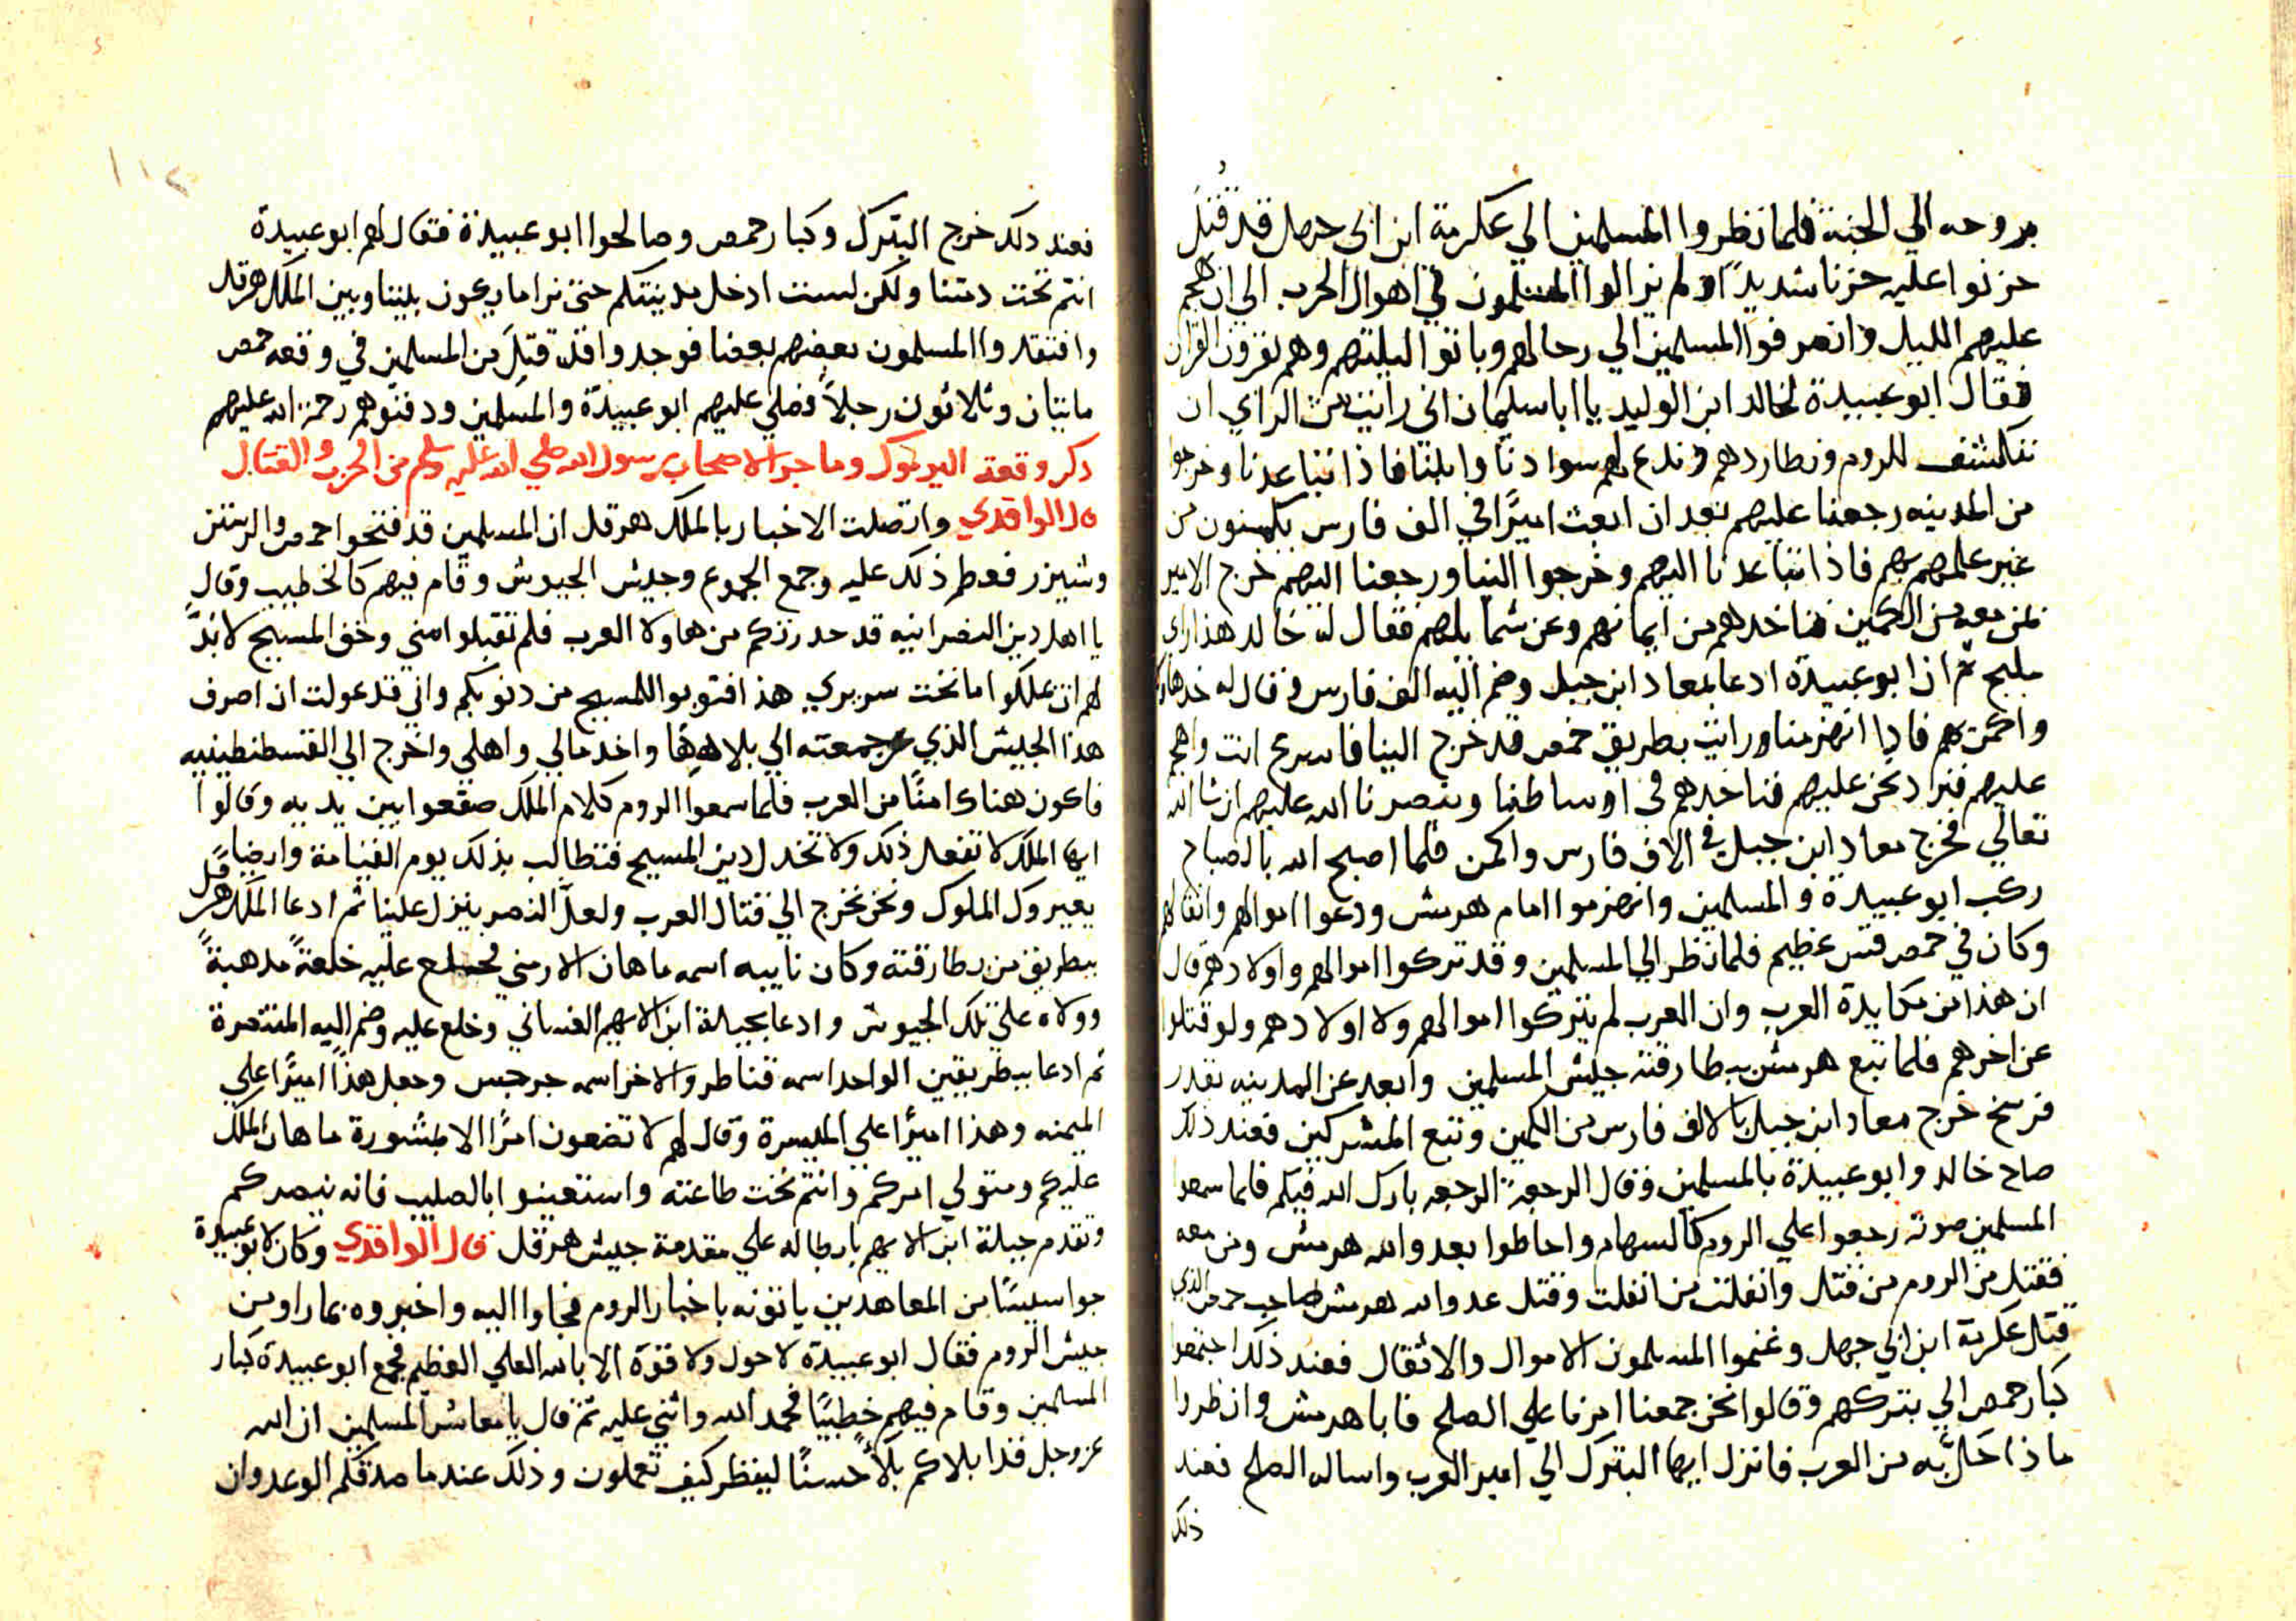 بروحه الي الجنة فلما نظروا المسلمين الي عكرمة ابن ابي جهل قد قتل
حزنوا عليه حزنا شديدًا ولم يزالوا المسلمون في اهوال الحرب الي ان هجم
عليهم الليل وانصرفوا المسلمين الي رحالهم وباتوا ليلتهم وهم يقرون القران
فقال ابو عبيدة لخالد ابن الوليد يا ابا سليمان اني رايت من الراي ان
ننكشف للروم ونطاردهم وندع لهم سوادنا وابلنا فاذا تباعدنا وخرجوا
من المدينه رجعنا عليهم بعد ان ابعث اميرًا في الف فارس يكمنون من
غير علمهم بهم فاذا تباعدنا اليهم وخرجوا الينا ورجعنا اليهم خرج الامير
بمن معه من الكمين فناخدهم من ايمانهم وعن شمايلهم فقال له خالد هذا راي
مليح ثم ان ابو عبيدة ادعا بمعاد ابن جبل وضم اليه الف فارس وقال له خد هاولا
واكمن بهم فادا انهزمنا ورايت بطريق حمص قد خرج الينا فاسرع انت واهجم
عليهم فنرد نحن عليهم فناخدهم في اوساطنا وينصرنا الله عليهم ان شا الله
تعالي فخرج معاد ابن جبل في الاف فارس واكمن فلما اصبح الله بالصباح
ركب ابو عبيدة والمسلمين وانهزموا امام هربيس ودعوا اموالهم واثقالهم
وكان في حمص قس عظيم فلما نظر الي المسلمين وقد تركوا اموالهم واولادهم قال
ان هذا من مكايدة العرب وان العرب لم يتركوا اموالهم ولا اولادهم ولو قتلوا
عن اخرهم فلما تبع هربيس ببطارقته جيش المسلمين وابعد عن المدينه بقدر
فرسخ خرج معاد ابن جبل بالالف فارس من الكمين وتبع المشركين فعند ذلك
صاح خالد وابو عبيدة بالمسلمين وقال الرجعة الرجعه بارك الله فيكم فلما سمعوا
المسلمين صوته رجعوا علي الروم كالسهام واحاطوا بعدو الله هربيس ومن معه
فقتل من الروم من قتل وانفلت من انفلت وقتل عدو الله هربيس صاحب حمص الذي
قتل عكرمة ابن ابي جهل وغنموا المسلمون الاموال والاثقال فعند ذلك اجتمعوا
كبار حمص الي بتركهم وقالوا نحن جمعنا امرنا علي الصلح فابا هربيس وانظروا
ماذا حل به من العرب فانزل ايها البترك الي امير العرب واساله الصلح فعند
ذلك
١١٢
فعند دلك خرج البترك وكبار حمص وصالحوا ابو عبيدة فقال لهم ابو عبيدة
انتم تحت دمتنا ولكن لست ادخل مدينتكم حتي نرا ما يكون بيننا وبين الملك هرقل
وافتقدوا المسلمون بعضهم بعضا فوجدوا قد قتل من المسلمين في وقعه حمص
مايتان وثلاثون رجلاً فصلي عليهم ابو عبيدة والمسلمين ودفنوهم رحمة الله عليهم
دكر وقعة اليرموك وما جرا لاصحاب رسول الله صلي الله عليه وسلم من الحرب والقتال
قال الواقدي واتصلت الاخبار بالملك هرقل ان المسلمين قد فتحوا حمص والرستن
وشيزر فعظم ذلك عليه وجمع الجموع وجيش الجيوش وقام فيهم كالخطيب وقال
يا اهل دين النصرانيه قد حدرتكم من هاولا العرب فلم تقبلوا مني وحق المسيح لا بد
لهم ان يملكوا ما تحت سريري هذا فتوبوا للمسيح من دنوبكم واني قد عولت ان اصرف
هذا الجيش الذي جمعته الي بلادها واخد مالي واهلي واخرج الي القسطنطينيه
فاكون هناك امنًا من العرب فلما سمعوا الروم كلام الملك صقعوا بين يديه وقالوا
ايها الملك لا تفعل ذلك ولا تخدل دين المسيح فتطالب بذلك يوم القيامة وايضا
يعيروك الملوك ونحن نخرج الي قتال العرب ولعل النصر ينزل علينا ثم ادعا الملك هرقل
ببطريق من بطارقته وكان نايبه اسمه ماهان الارمني فخلع عليه خلعةً مدهبةً
وولاه علي تلك الجيوش وادعا بجبلة ابن الايهم الغساني وخلع عليه وضم اليه المنتصرة
ثم ادعا ببطريقين الواحد اسمه قناطر والاخر اسمه جرجس وجعل هذا اميرًا علي
الميمنه وهذا اميرًا علي الميسرة وقال لهم لا تضعون امرًا الا بمشورة ماهان الملك
عليكم ومتولي امركم وانتم تحت طاعته واستعينوا بالصليب فانه ينصركم
وتقدم جبلة ابن الايهم بابطاله علي مقدمة جيش هرقل قال الواقدي وكان لابو عبيدة
جواسيسًا من المعاهدين ياتونه باخبار الروم فجاوا اليه واخبروه بما راو من
جيش الروم فقال ابو عبيدة لا حول ولا قوة الا بالله العلي العظيم فجمع ابو عبيدة كبار
المسلمين وقام فيهم خطيبًا فحمد الله واثني عليه ثم قال يا معاشر المسلمين ان الله
عز وجل قد ابلاكم بلاً حسنًا لينظر كيف تعملون وذلك عندما صدقكم الوعد وان